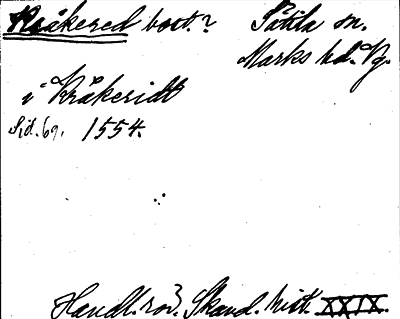 Kråkered bort.? Sätila sn.
Marks hd. Vg.
i Kråkeridt
Sid. 69. 1554.
Handl. rör. Skand. hist. XXIX.